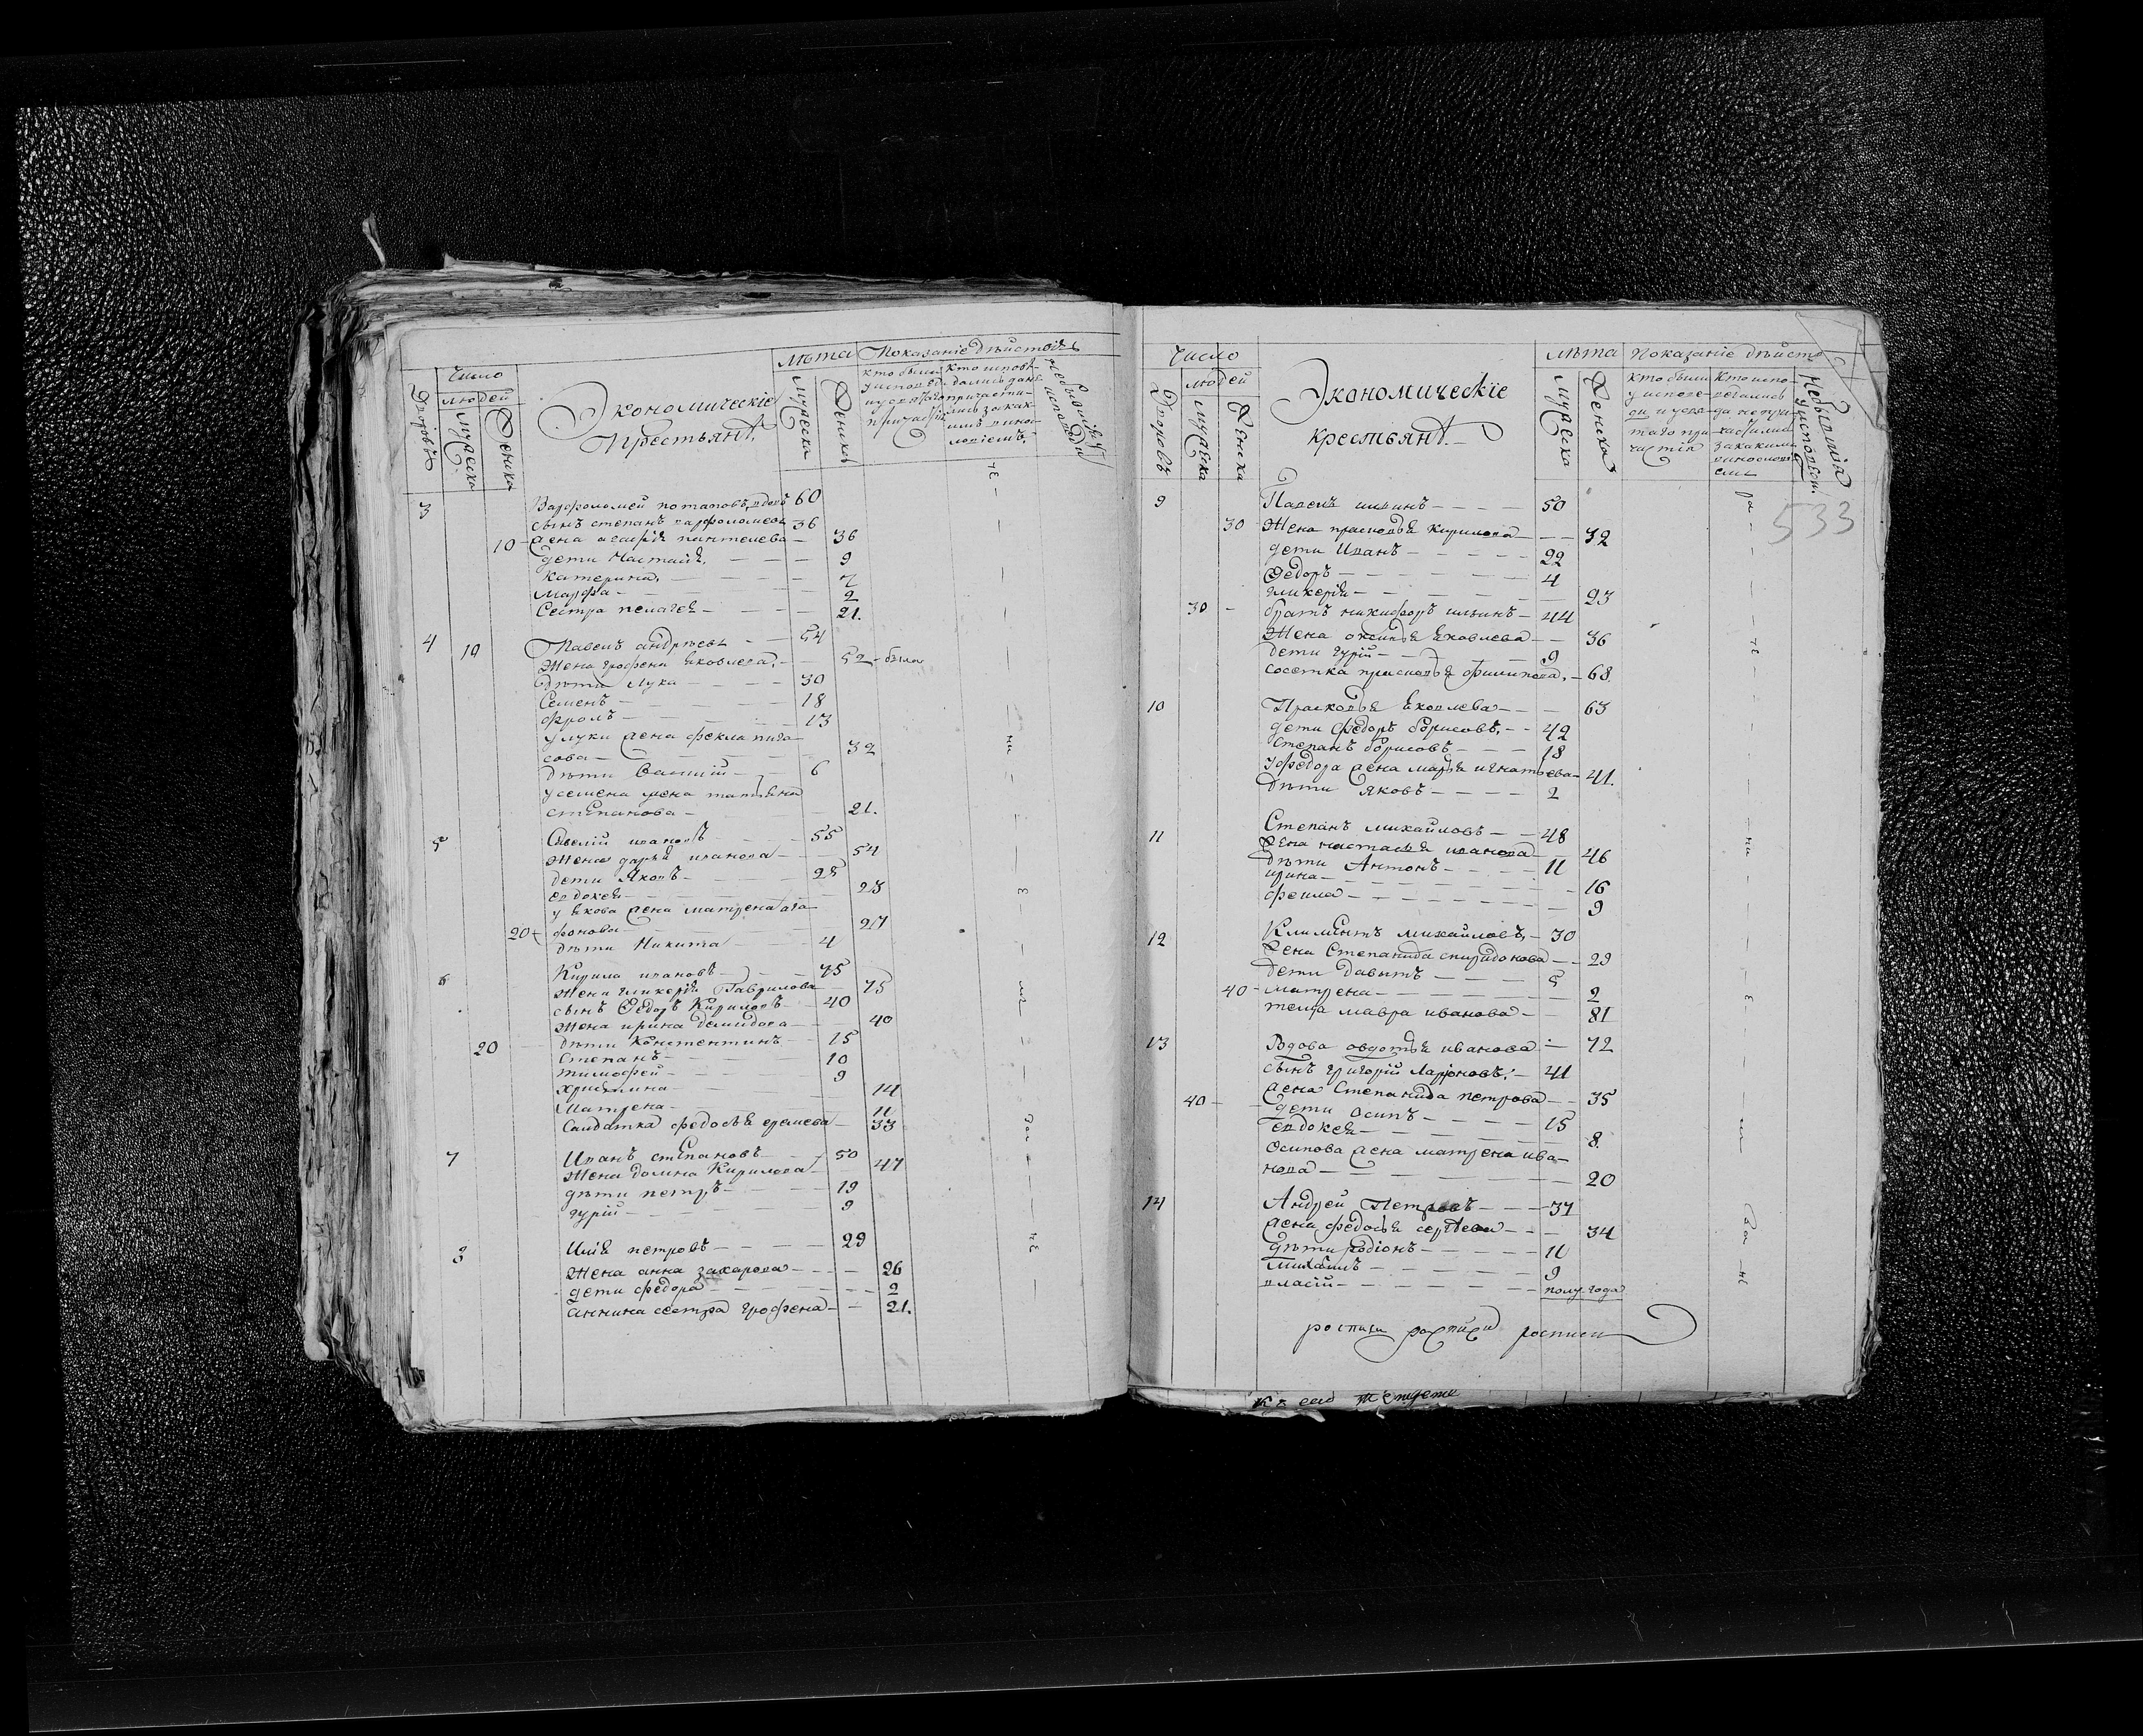 Число
людей
Дворовъ
мужеска
женска
Экономическіе
Крестьянѣ
Лѣта
мужеска
женска
Показаніе дѣйства
кто были
у исповѣд
3
Варфоломей потаповъ вдовъ 60
сынъ степанъ варфоломеевъ 36
10 – жена агафія пантелева – 36
дети Настасія – – – 9
Катерина – – – 7
Марфа – – – 2
Сестра пелагея – – – 21.
4 10 Павелъ андрѣевъ – – 54
Жена грофена яковлева – 52 – была
дѣти Лука – – – 30
Семенъ – – – 18
фролъ – – – 13
у луки жена фекла
сова – – – 32
дѣти Василій – – 6
у семена жена татьяна
степанова – – – 21.
5 Савелій ивановъ – – 55
Жена дарья иванова – – 54
дети Яковъ – – – 28
евдокея – – – 23
у якова жена матрена ага
20 фонова – – – 27
дѣти Никита – – 4
6 Кирила ивановъ – – 75
Жена гликерія Гаврилова – 75
сынъ Федоръ Кириловъ – 40
Жена ирина демидова – – 40
20 дѣти Констентинъ – 15
Степанъ – – – 10
тимофей – – – 9
христина – – – 14
Матрена – – – 11
Салдатка федосья еремева – 33
7 Иванъ степановъ – – 50
Жена домна Кирилова – 47
дѣти петръ – – – 19
гурій – – – 9
8 Илія петровъ – – – 29
Жена анна захарова – – – 26
дети федора – – – 2
аннина сестра грофена – – 21.
Число
людей
Дворовъ
мужеска
женска
Экономическіе
крестьянѣ.
лѣта
мужеска
женска
Показаніе дѣйства
кто были
Небывшія
533
9 Павелъ ильинъ – – – – 50
30 Жена прасковья Кирилова – – – 32
дети Иванъ – – – 22
Федоръ – – – 4
гликерія – – – 23
30 – братъ никифоръ ильинъ – 44
Жена оксинья яковлева – – 36
дети гурій – – – 9
сосетка прасковья филипова, – 68
10 Прасковья яковлева – – – 63
дети федоръ борисовъ, – – 42
Степанъ борисовъ, – – – 18
у федора жена марья игнатьева – 41.
дѣти яковъ – – – – 2
11 Степанъ михайловъ – – 48
жена настасья иванова 46
дѣти Антонъ – – – 11
ирина – – – 16
фекла – – – 9
12 Климентъ михайловъ, – 30
жена Степанида спиридонова – – 29
дети давытъ – – – 5
40 – матрена – – – 2
теща мавра иванова – – 81
13 Вдова овдотья иванова – 72
сынъ григорій Ларіоновъ – 41
жена Степанида петрова – – 35
40 – дети осипъ – – – 15
евдокея – – – 8.
Осипова жена матрена ива–
нова – – – 20
14 Андрей Петровъ – – – 37
жена федосья сергеева – – – 34
дѣти родіонъ – – – 11
Михайлъ – – – 9
власій – – – полу года
росписи росписи росписи